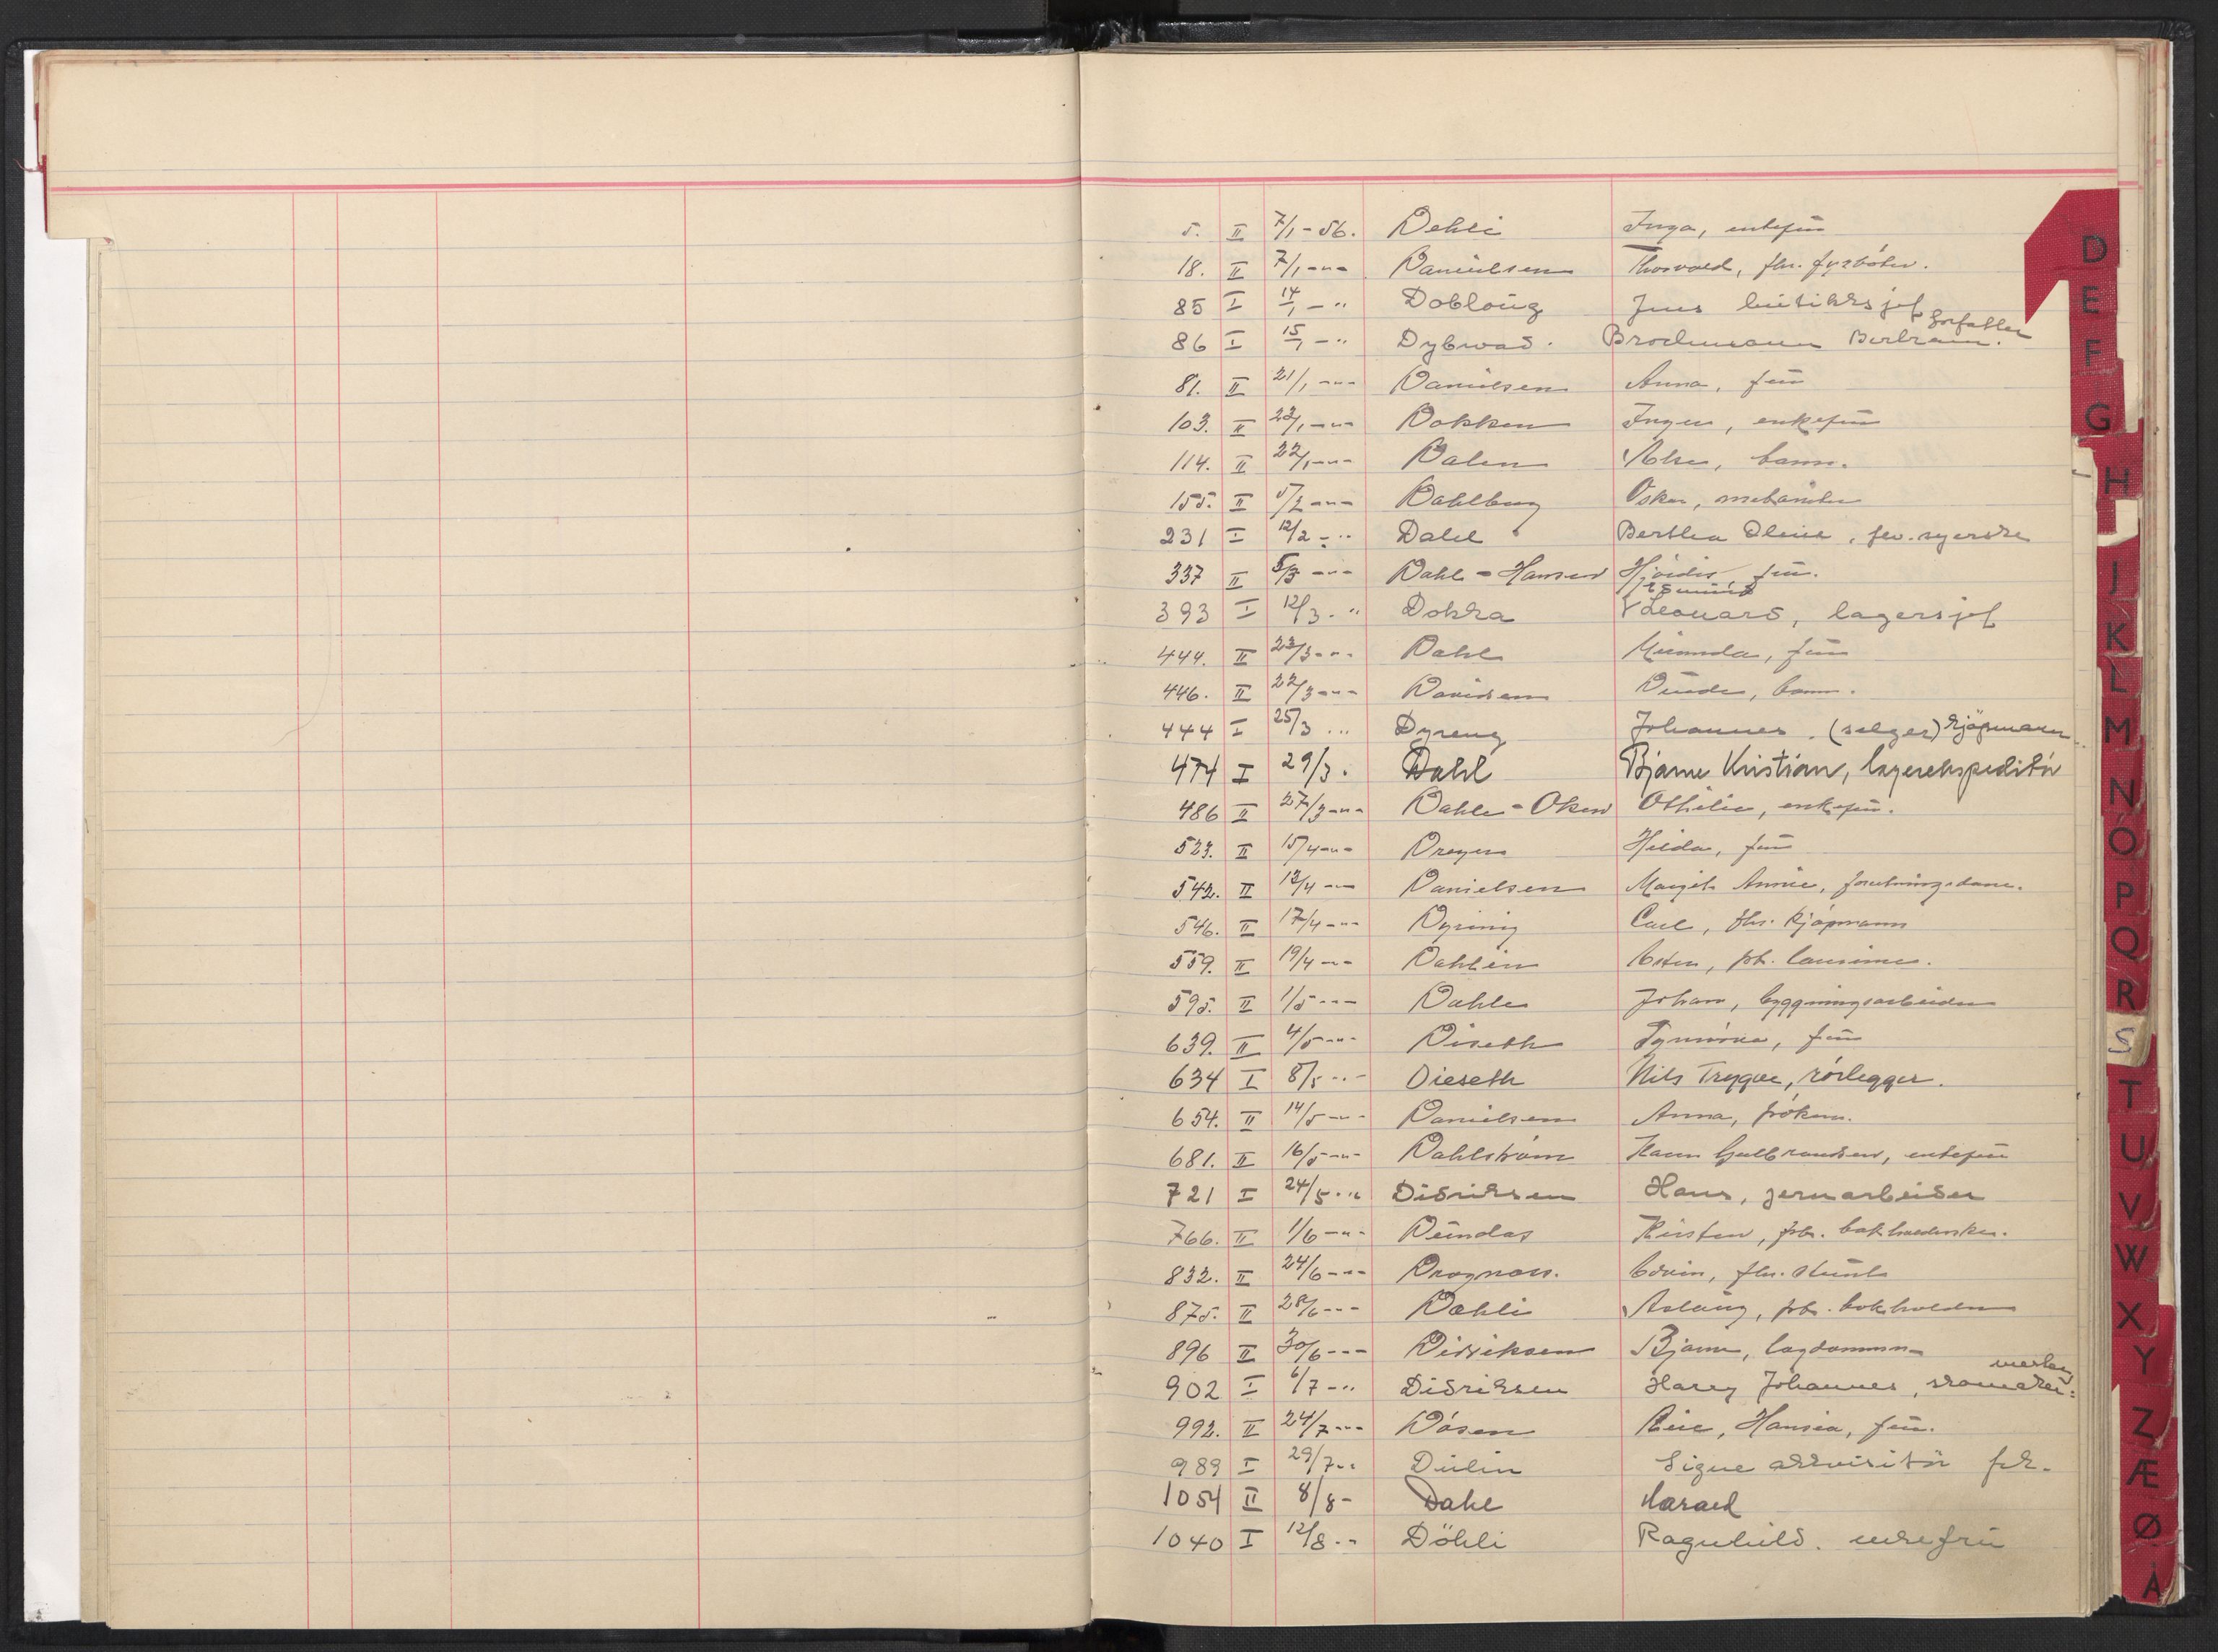 5. II 7/1-56. Dehli Inga, enkefrū
18. II 7/1 -"- Danielsen Thorvald, fhv. fyrbøter.
85 I 14/1 - " Dobloūg Jens būtikksjef
86 I 15/1 - " Dybwad. Brochmann Bertram. forfatter
81. II 21/1 -"- Danielsen Anna, frū
103. II 23/1 -"- Dokken Inger, enkefrū
114. II 22/1 -"- Dalen barn.
155. II 5/2 -"- Dahlberg Oskar, mekaniker
231 I 12/2 - " Dahl Berthea Oline, fev. syerske
337 II 5/3 -"- Dahl-Hansen Hjördis frū.
393 I 12/3 - " Dokka Edmūnd Leonard, lagersjef
444. II 23/3 -"- Dahl Minda, frū
446. II 22/3 -"- Davidsen barn.
444 I 25/3 " Dyreng Johannes. (selger) kjöpmann
474 I 29/3. Dahl Bjarne Kristian, lagerekspeditör
486 II 27/3 -"- Dahle-Olsen Othilie, enkefrū.
523. II 15/4 -"- Dreyer Hilda, frū
542. II 13/4 -"- Danielsen Margit Annie, forretningsdame.
546. II 17/4 -"- Dyring Carl, fhv. kjøpmann
559. II 19/4 -"- Dahlin
595. II 1/5 -"- Dahle Johan, bygningsarbeider
639. II 4/5 -"- Diseth frū
634 I 8/5 -"- Dieseth Nils Trygve, rörlegger.
654. II 14/5 -"- Danielsen Anna, frøken.
681. II 16/5 -"- Dahlstrøm Karen Gulbrandsen, enkefrū
721 I 24/5 " Didriksen Hans, jernarbeider
766. II 1/6 -"- Dūndas Kirsten, frk. bokholderske.
832. II 24/6 -"- Dragnass. Edvin, fhv.
875. II 28/6 -"- Dahli Aslaūg, frk. bokholder
896 II 30/6 -"- Didriksen Bjarne, lagdommer
902 I 6/7 - " Didriksen Harry Johannes, skomaker- mester
992. II 24/7 -"- Døsen Hansea, frū.
989 I 29/7 " Dūlin Signe akkvisitör frk.
1054 II 8/8 - Dahl Harald
1040 I 12/8 - Döhli Ragnhild. enkefrū
D
E
F
G
H
I
J
K
L
M
N
O
P
Q
R
S
T
U
V
W
X
Y
Z
Æ
Ø
Å